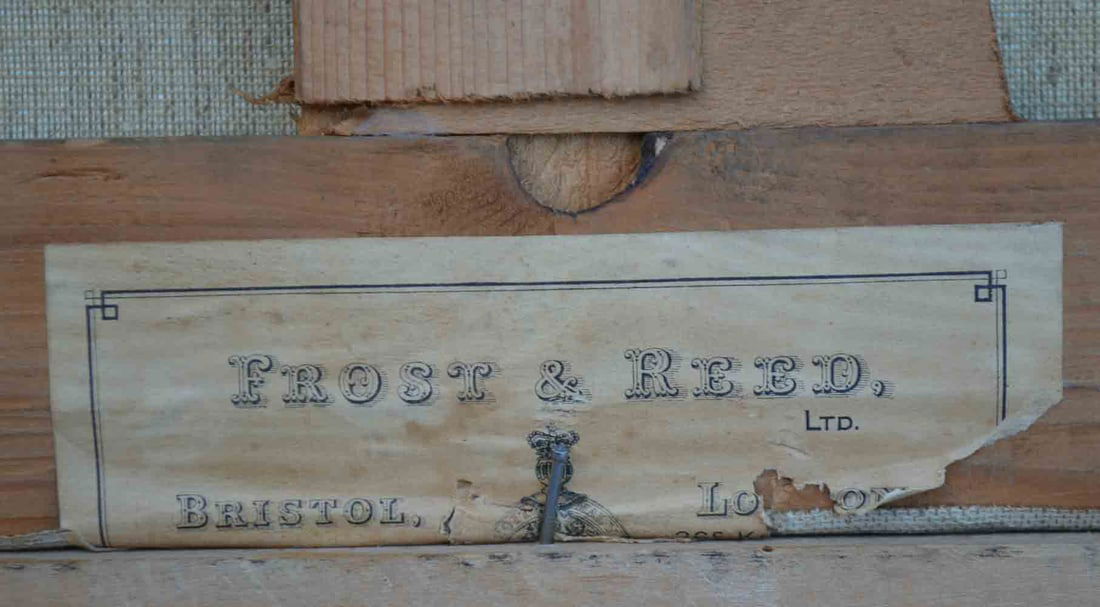 FROST & REED,
LTD.
BRISTOL,